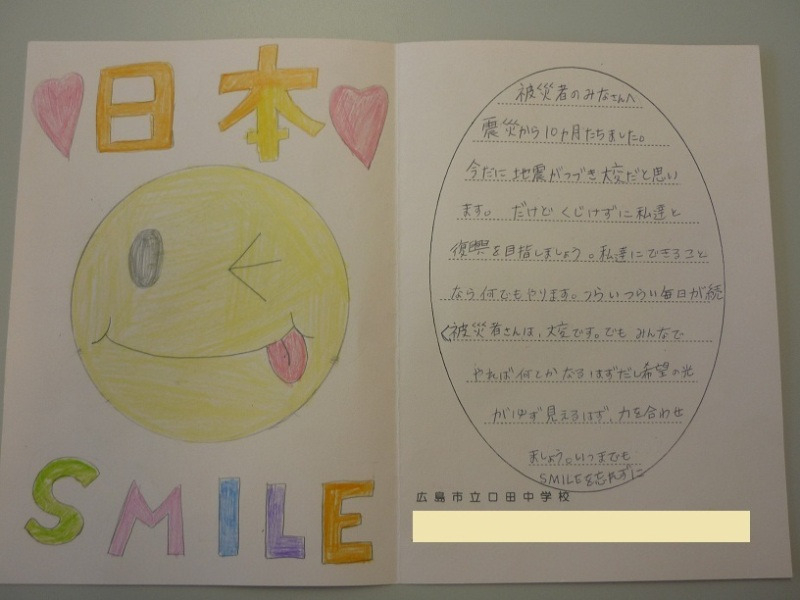 日本
SMILE
被災者のみなさんへ
震災から10ヵ月たちました。
今だに地震がつづき大変だと思い
ます。だけどくじけずに私達と
復興を目指しましょう。私達にできること
なら何でもやります。つらいつらい毎日が続
く被災者さんは、大変です。でもみんなで
やれば何とかなるはずだし希望の光
が必ず見えるはず、力を合わせ
ましょう。いつまでも
SMILEを忘れずに
広島市立口田中学校